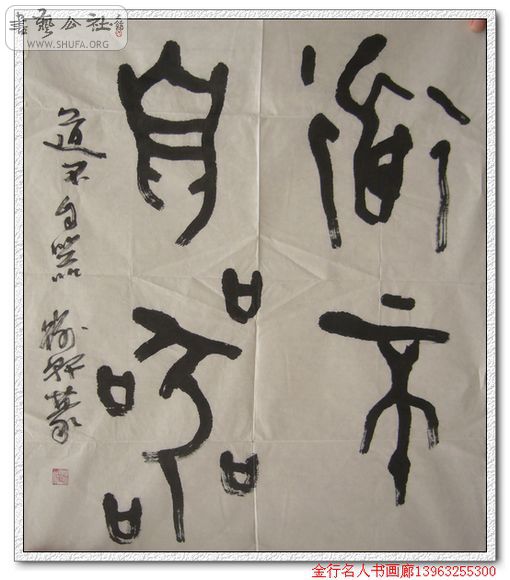 書藝公社
WWW.SHUFA.ORG
道不
自器
道不自器 篆
金行名人书画廊13963255300